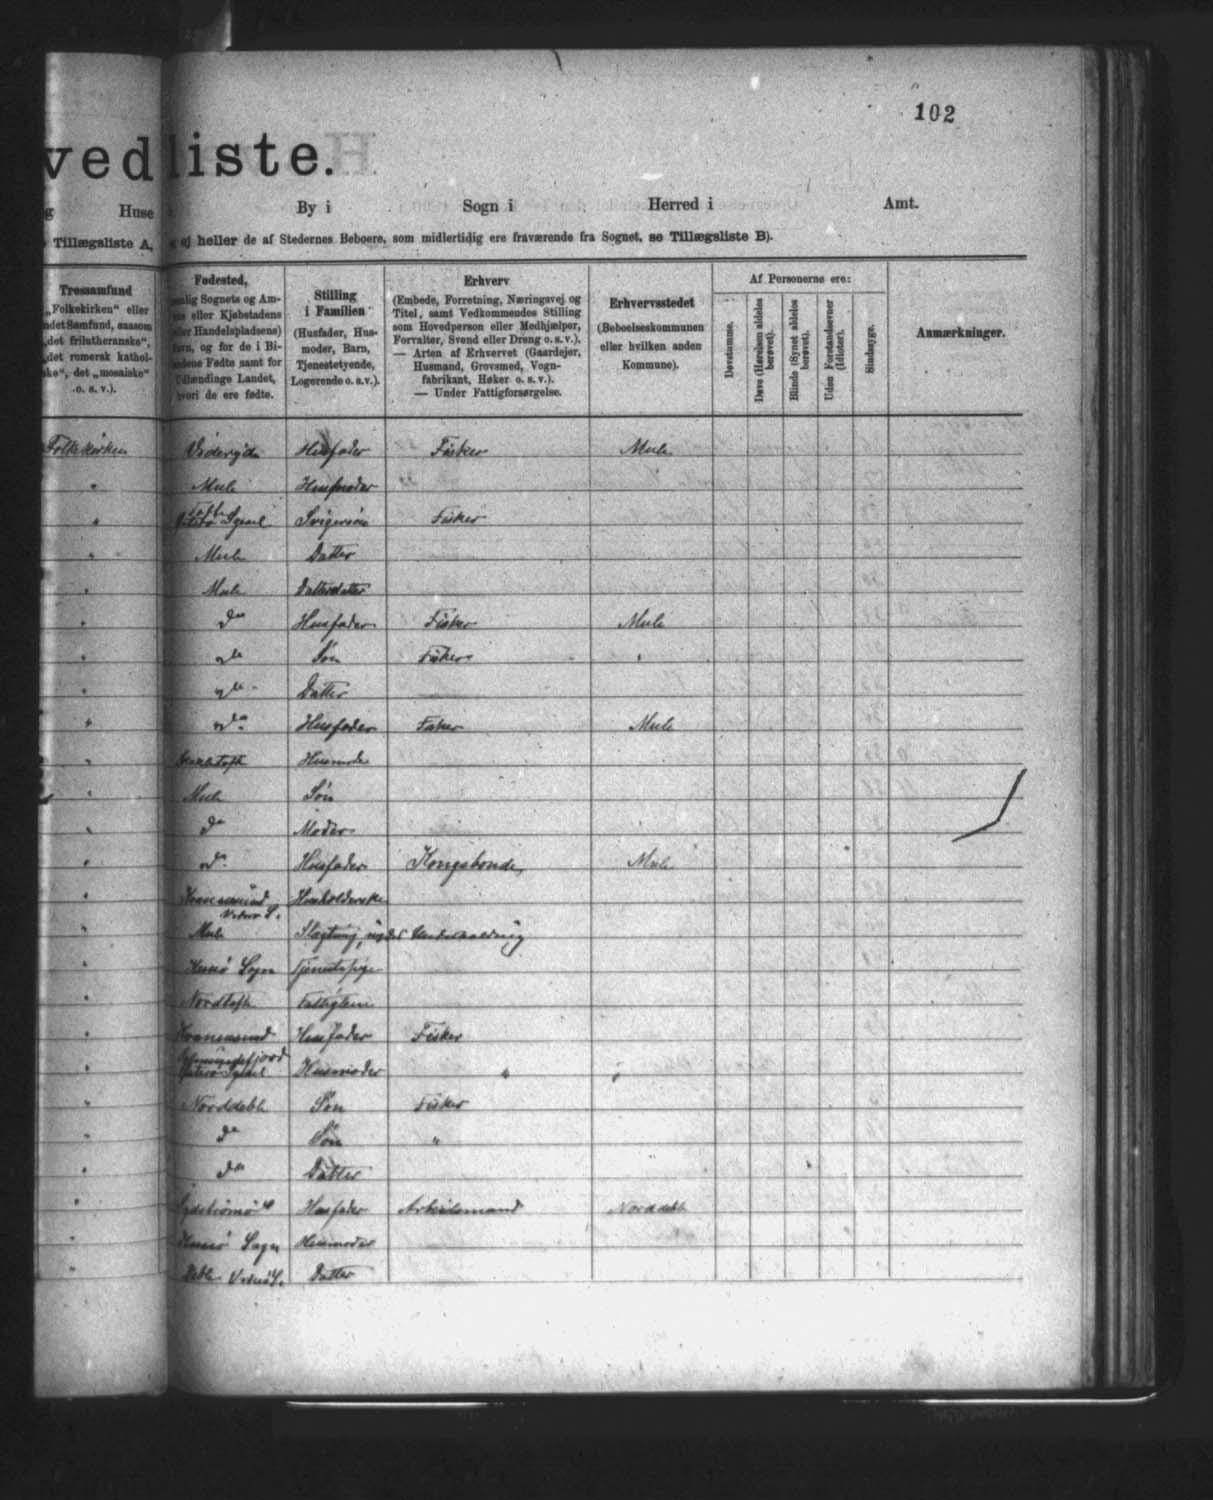 102
vedliste.
g Huse By i Sogn i Herred i Amt.
Tillægsliste A, ej heller de af Stedernes Beboere, som midlertidig ere fraværende fra Sognet, se Tillægsliste B).
Trossamfund
„Folkekirken“ eller
ndet Samfund, saasom
„det frilutheranske“,
det romersk kathol-
ske“, det „mosaiske“
o. s. v.).
Fødested,
nlig Sognets og Am-
eller Kjøbstadens
ler Handelspladsens)
avn, og for de i Bi-
ndene Fødte samt for
Udlændinge Landet,
hvori de ere fødte.
Stilling
i Familien
(Husfader, Hus-
moder, Barn,
Tjenestetyende,
Logerende o. s.v.).
Erhverv
(Embede, Forretning, Næringsvej og
Titel, samt Vedkommendes Stilling
som Hovedperson eller Medhjælper,
Forvalter, Svend eller Dreng o. s. v.).
— Arten af Erhvervet (Gaardejer,
Husmand, Grovsmed, Vogn-
fabrikant, Høker o. s. v.).
— Under Fattigforsørgelse.
Erhvervsstedet
(Beboelseskommunen
eller hvilken anden
Kommune).
Af Personerne ere:
Døvstumme.
Døve (Hørelsen aldeles
berøvet).
Blinde (Synet aldeles
berøvet).
Uden Forstandsevner
(Idioter).
Sindssyge.
Anmærkninger.
Folkekirken Husfader Fisker Mule
" Mule Husmoder
" Svigersøn Fisker
" Mule Datter
" Mule Datterdatter
" do Husfader Fisker Mule
" do Søn Fisker "
" do Datter
" do Husfader Fisker Mule
" Husmoder
" Mule Søn
" do Moder
" do Husfader Kongsbonde Mule
" Kvannesund
Viderø S. Husholderske
" Mule Slægtning, nyder Underholdning
" Kunø Sogn Tjenestepige
" Nordtofte Fattiglem
" Kvannesund Husfader Fisker
" Husmoder " "
" Norddeble Søn Fisker
" do Søn "
" do Datter
" Husfader Arbeidsmand Norddeble
" Kunø Sogn Husmoder
" Deble Viderø S. Datter